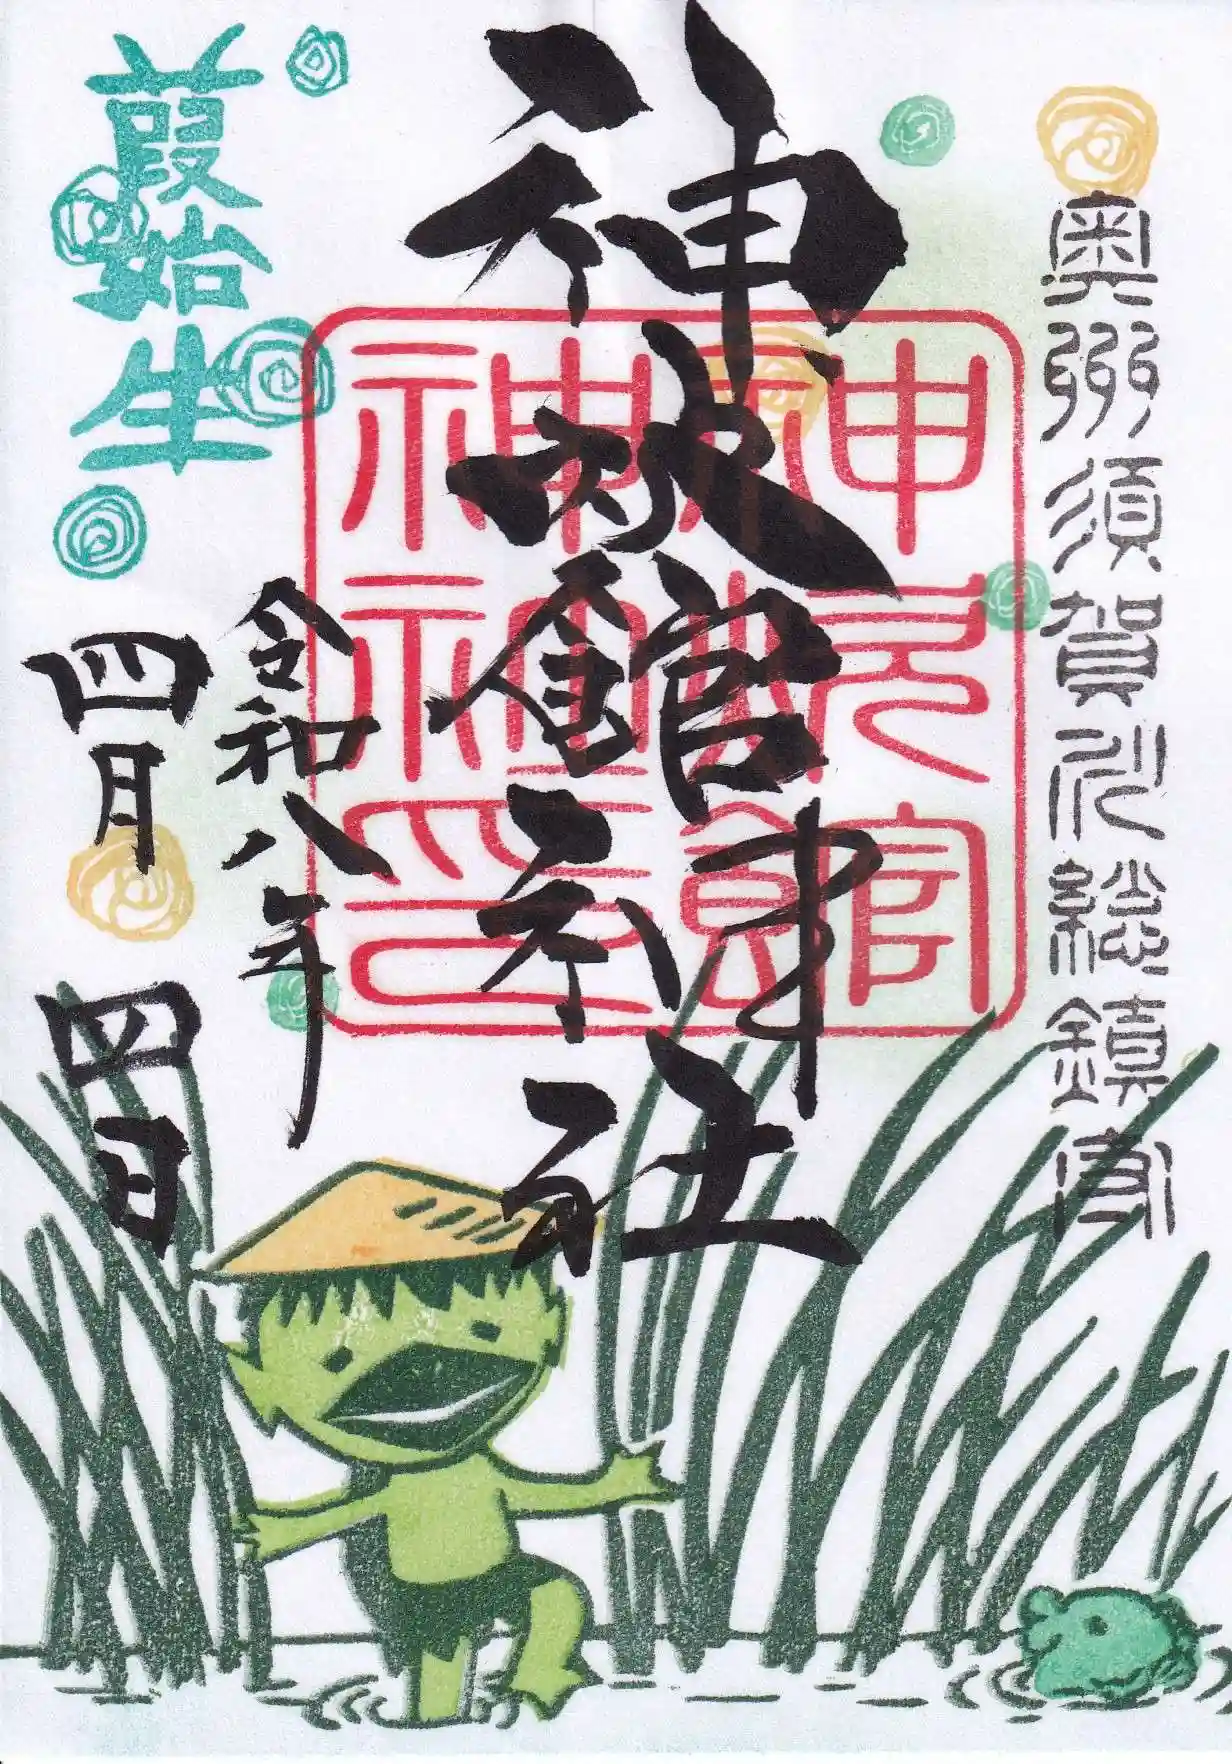 奥州須賀川総鎮守
神炊館神社
神炊館
神社印
令和八年
四月四日
葭始生